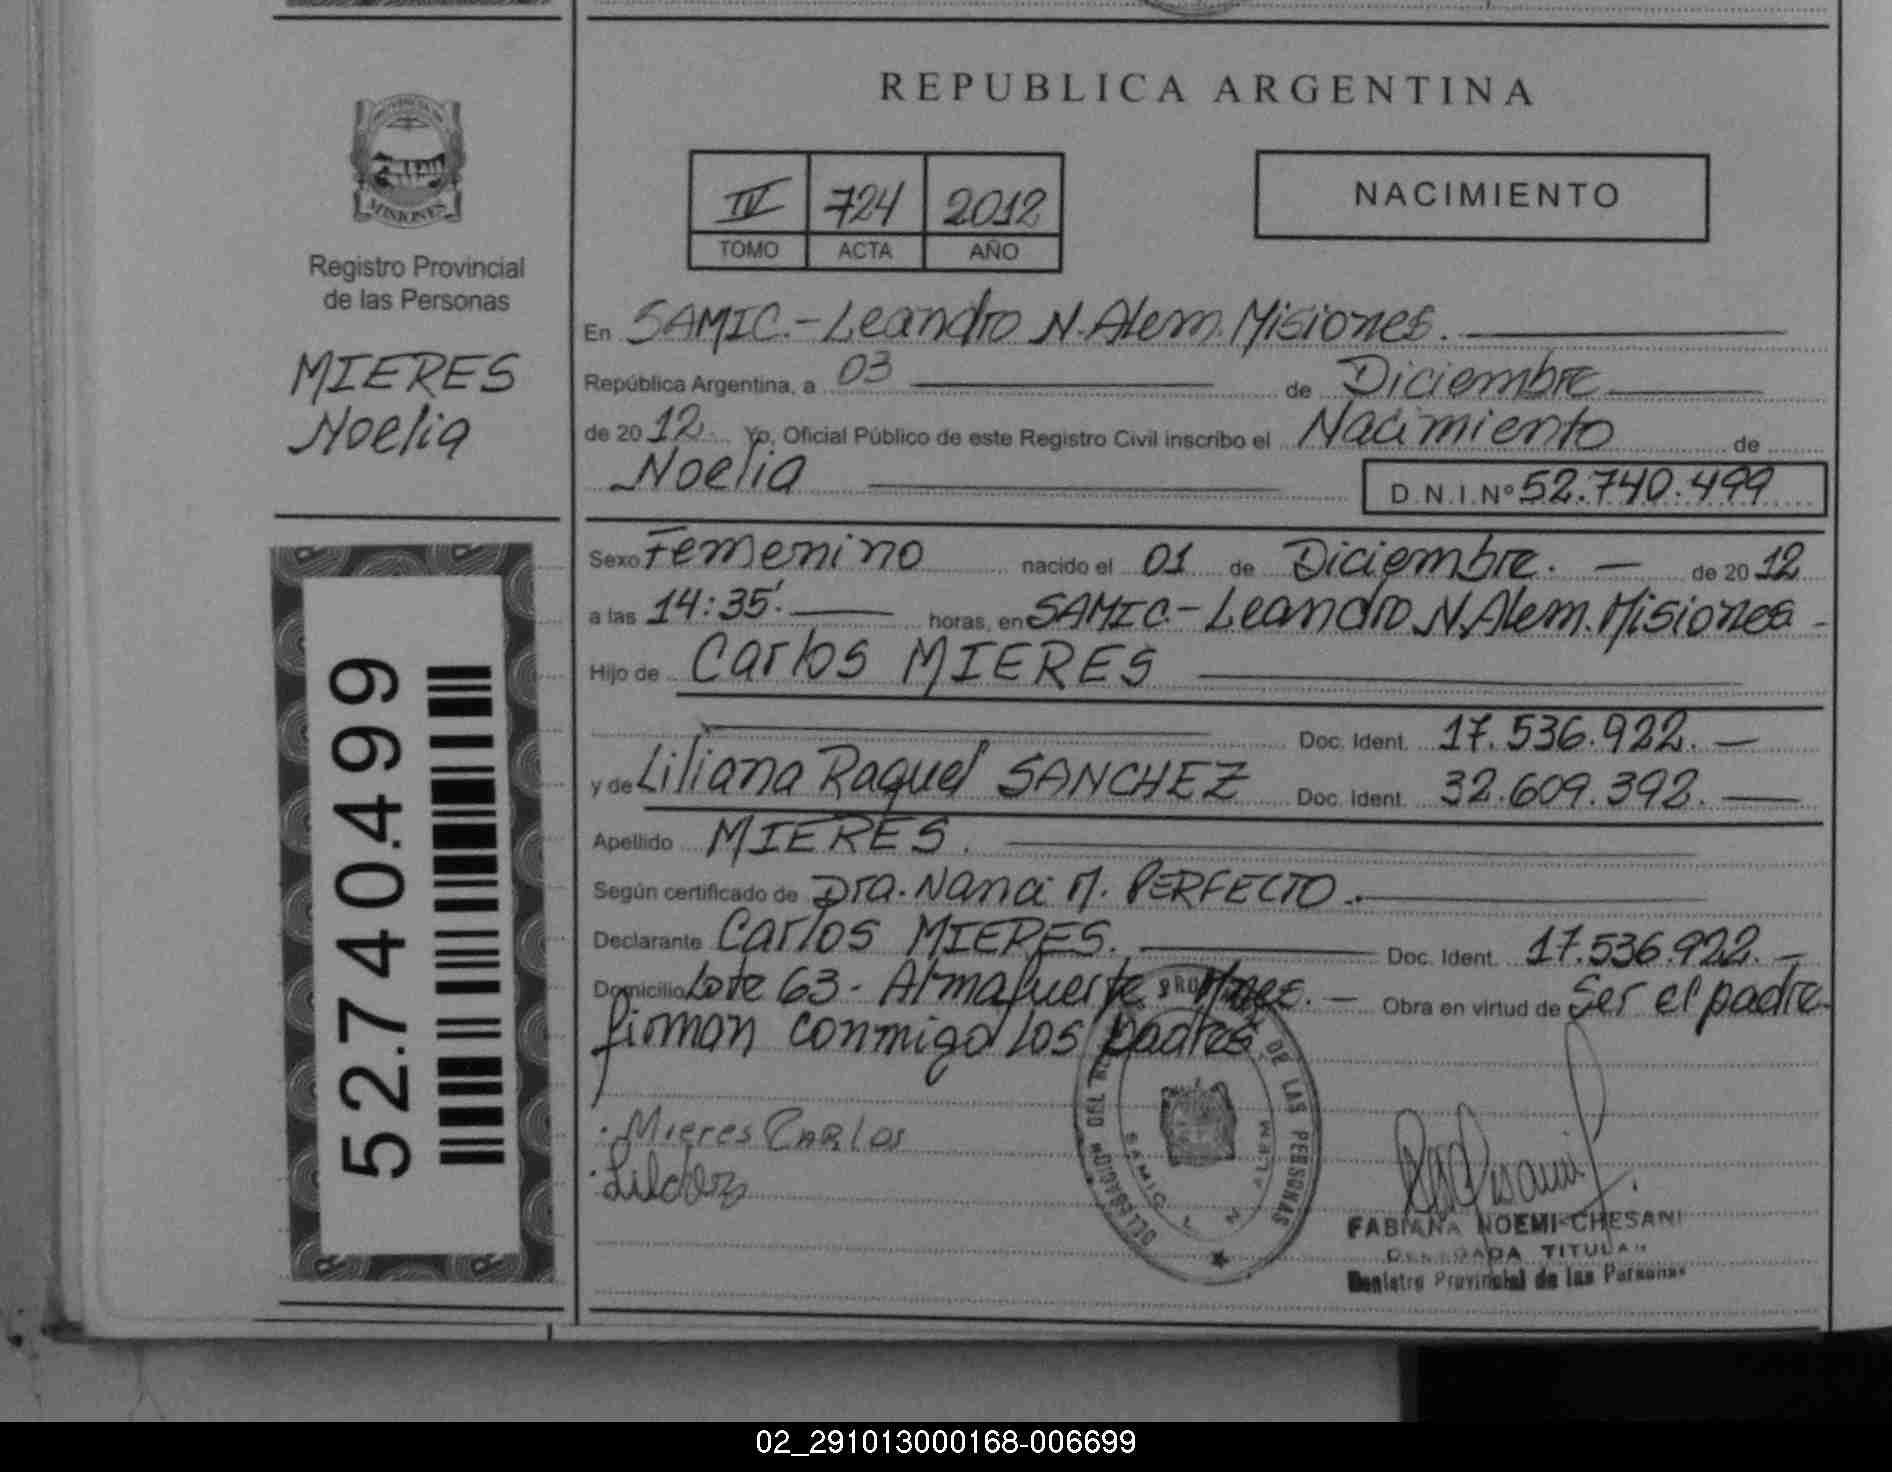 REPUBLICA ARGENTINA
PROVINCIA DE
MISIONES
Registro Provincial
de las Personas
MIERES
Noelia
52.740.499
IV 724 2012
TOMO ACTA AÑO
NACIMIENTO
En SAMIC.- Leandro N. Alem. Misiones.
República Argentina, a 03 de Diciembre
de 2012. Yo, Oficial Público de este Registro Civil inscribo el Nacimiento de
Noelia D.N.I.Nº 52.740.499
Sexo Femenino nacido el 01 de Diciembre. - de 2012
a las 14:35'. horas, en SAMIC.- Leandro N. Alem. Misiones -
Hijo de Carlos MIERES
Doc. Ident. 17.536.922. -
y de Liliana Raquel SANCHEZ Doc. Ident. 32.609.392. -
Apellido MIERES.
Según certificado de Dra. Nanci M. PERFECTO.
Declarante Carlos MIERES. Doc. Ident. 17.536.922. -
Domicilio Lote 63 - Almafuerte Mnes. - Obra en virtud de Ser el padre.
firman conmigo los padres
Mieres CARLOS
DELEGACION DEL PROVINCIAL DE LAS PERSONAS
SAMIC L N ALEM
FABIANA NOEMI CHESANI
DELEGADA TITULAR
Registro Provincial de las Personas
02_291013000168-006699